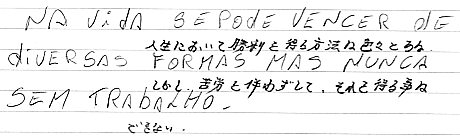 NA VIDA SE PODE VENCER DE
人生において勝利を得る方法は色々とあるが
DIVERSAS FORMAS MAS NUNCA
しかし苦労を伴わずして、それを得る事は
SEM TRABALHO.
できない.